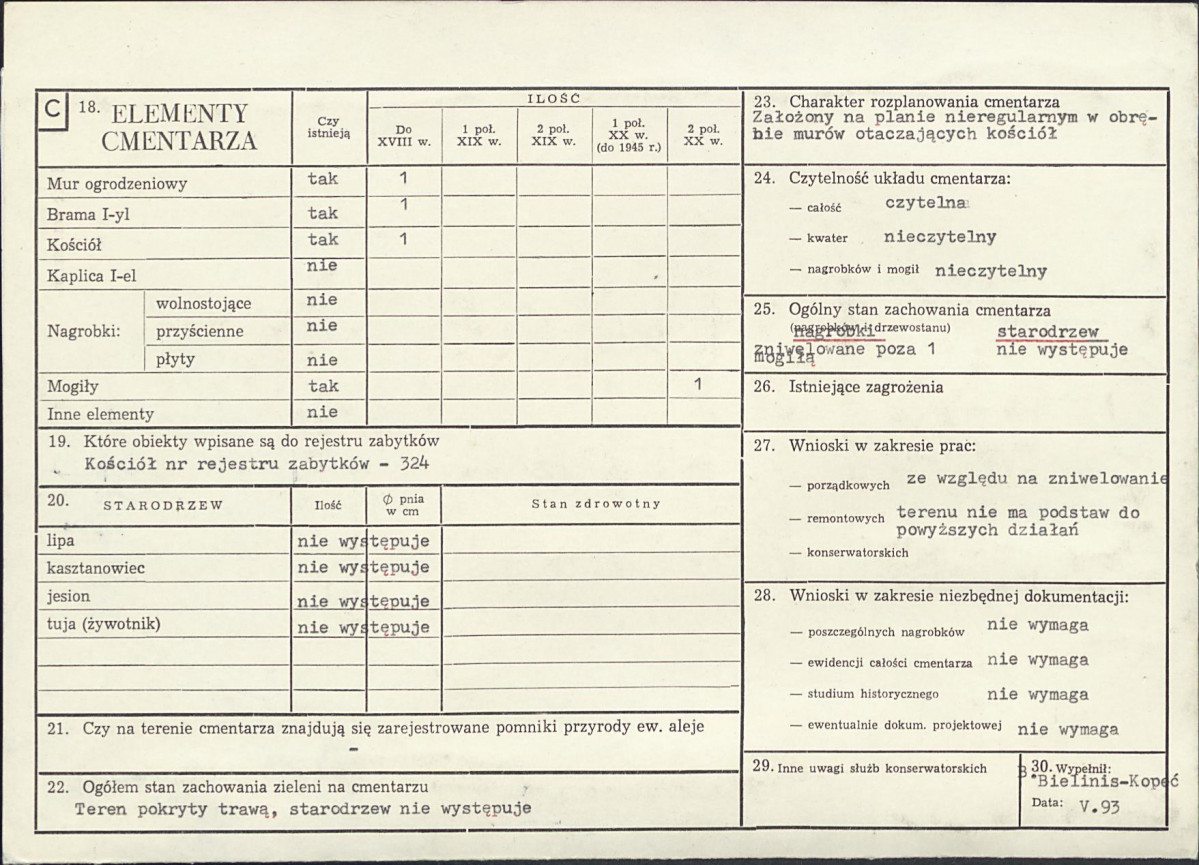 C 18. ELEMENTY CMENTARZA
Czy istnieją
ILOŚĆ
Do XVIII w.
1 poł. XIX w.
2 poł. XIX w.
1 poł. XX w. (do 1945 r.)
2 poł. XX w.
Mur ogrodzeniowy tak 1
Brama I-yl tak 1
Kościół tak 1
Kaplica I-el nie
Nagrobki:
wolnostojące nie
przyścienne nie
płyty nie
Mogiły tak 1
Inne elementy nie
19. Które obiekty wpisane są do rejestru zabytków
Kościół nr rejestru zabytków - 324
20. STARODRZEW Ilość Ø pnia w cm Stan zdrowotny
lipa nie występuje
kasztanowiec nie występuje
jesion nie występuje
tuja (żywotnik) nie występuje
21. Czy na terenie cmentarza znajdują się zarejestrowane pomniki przyrody ew. aleje
-
22. Ogółem stan zachowania zieleni na cmentarzu
Teren pokryty trawą, starodrzew nie występuje
23. Charakter rozplanowania cmentarza
Założony na planie nieregularnym w obrę-
bie murów otaczających kościół
24. Czytelność układu cmentarza:
— całość czytelna
— kwater nieczytelny
— nagrobków i mogił nieczytelny
25. Ogólny stan zachowania cmentarza
(nagrobków i drzewostanu)
nagrobki starodrzew
zniwelowane poza 1 nie występuje
mogiłą
26. Istniejące zagrożenia
27. Wnioski w zakresie prac:
— porządkowych ze względu na zniwelowanie
— remontowych terenu nie ma podstaw do
powyższych działań
— konserwatorskich
28. Wnioski w zakresie niezbędnej dokumentacji:
— poszczególnych nagrobków nie wymaga
— ewidencji całości cmentarza nie wymaga
— studium historycznego nie wymaga
— ewentualnie dokum. projektowej nie wymaga
29. Inne uwagi służb konserwatorskich
30. Wypełnił:
B.Bielinis-Kopeć
Data: V.93